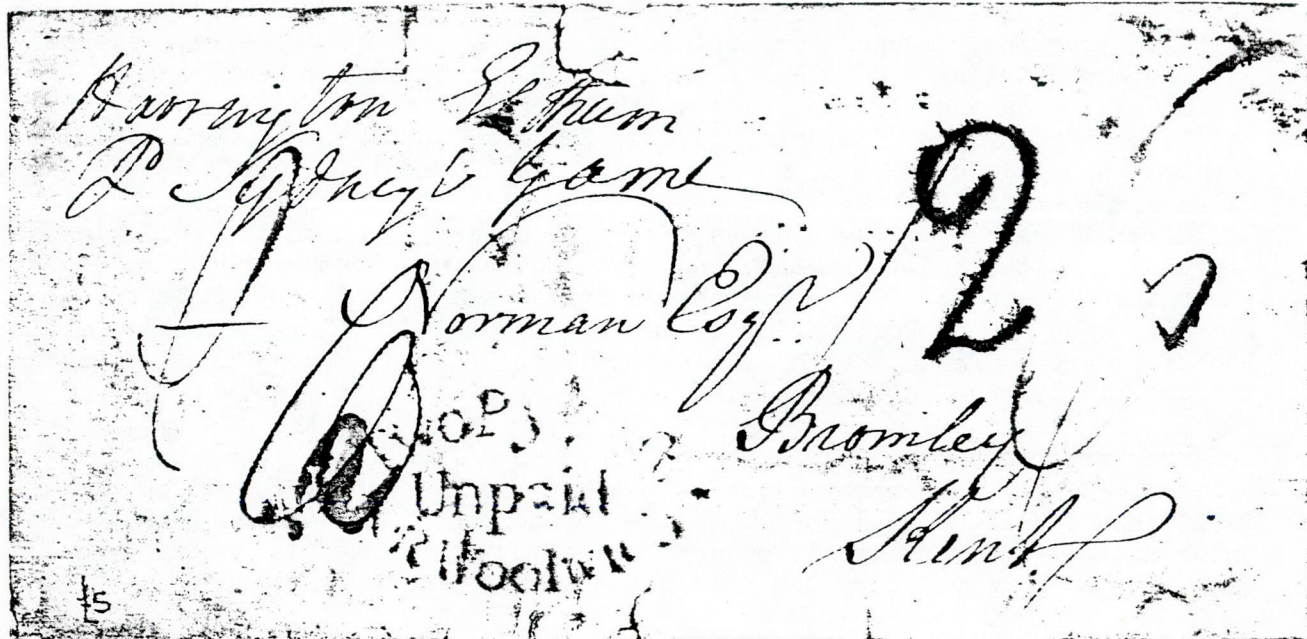 Harrington Eltham
P Sydney's Game
2
Norman Esqr.
Bromley
Kent.
Unpaid
Woolwich
£5